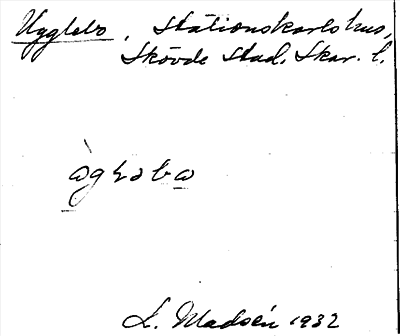 Ugglebo, Stationskarlshus,
Skövde Stad. Skar. l.
L. Madsén 1932